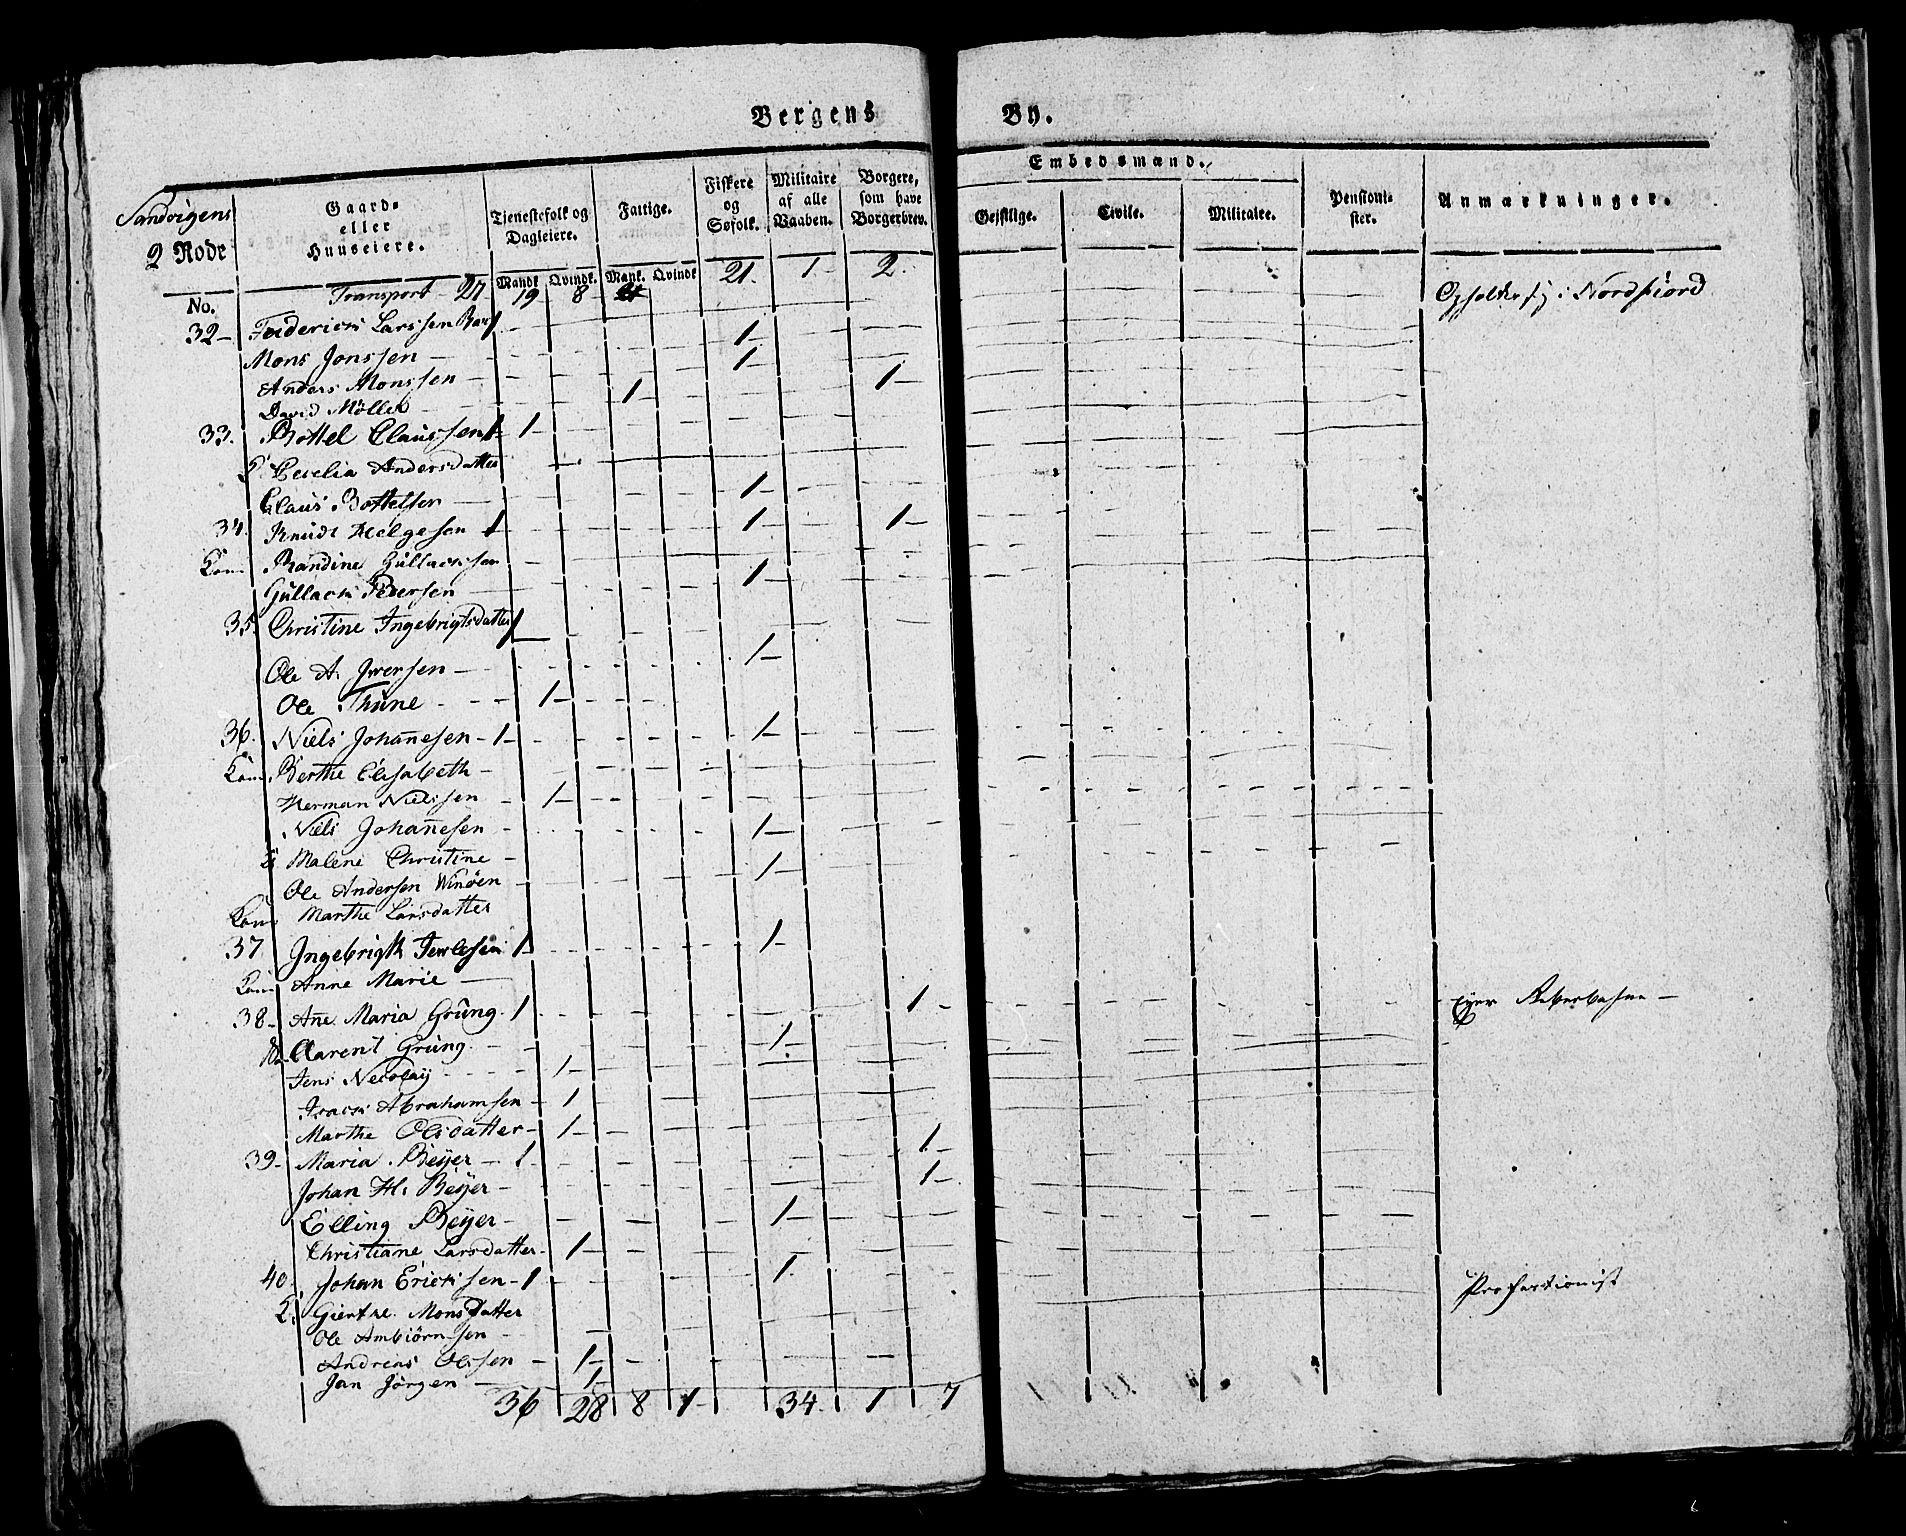 Bergens By.
Sandvigens 2 Rode
No.
Gaard- eller Huuseiere.
Tjenestefolk og Dagleiere.
Mandk. Qvindk.
Fattige.
Mank. Qvindk.
Fiskere og Søfolk.
Militaire af alle Vaaben.
Borgere, som have Borgerbrev.
Embedsmænd.
Gejstlige. Civile. Militaire.
Pensionister.
Anmærkninger.
Transport 27 19 8 21. 1- 2.
32- Friderich Larssen 1 1- i Nordfiord
Mons Jonssen 1-
Anders Monssen 1-
David Möller 1-
33. Bottel Claussen 1 1-
Cecelia Andersdatter
Claus Bottelsen 1-
34. Knudt Helgesen 1 1- 1-
Kon. Randine Gullachssen
Gullach Pedersen 1-
35. Christine Ingebrigtsdatter 1
Ole A. Iversen 1-
Ole Thune 1-
36. Niels Johanesen 1- 1-
Kon. Berthe Elisabeth
Herman Nielssen 1-
Niels Johanesen 1-
K. Malene Christine
Ole Andersen Winöen 1-
Kon. Marthe Larsdatter
37 Ingebrigth 1 1-
Kon. Anne Marie
38- Ane Maria Grüng 1 1- Eyer Reberbahne
Clarent Grüng 1-
Jens Necolay 1-
Isach Abrahamsen 1
Marthe Olsdatter 1-
39- Maria Beyer 1 1-
Johan H. Beyer 1-
Elling Beyer 1-
Christiane Larsdatter 1-
40. Johan Erichsen 1 1- Profestionist
K. Giertre Monsdatter
Ole Ambiörnsen
Andreas Olssen 1-
Jan Jörgen 1-
36 28 8 1- 34. 1 7